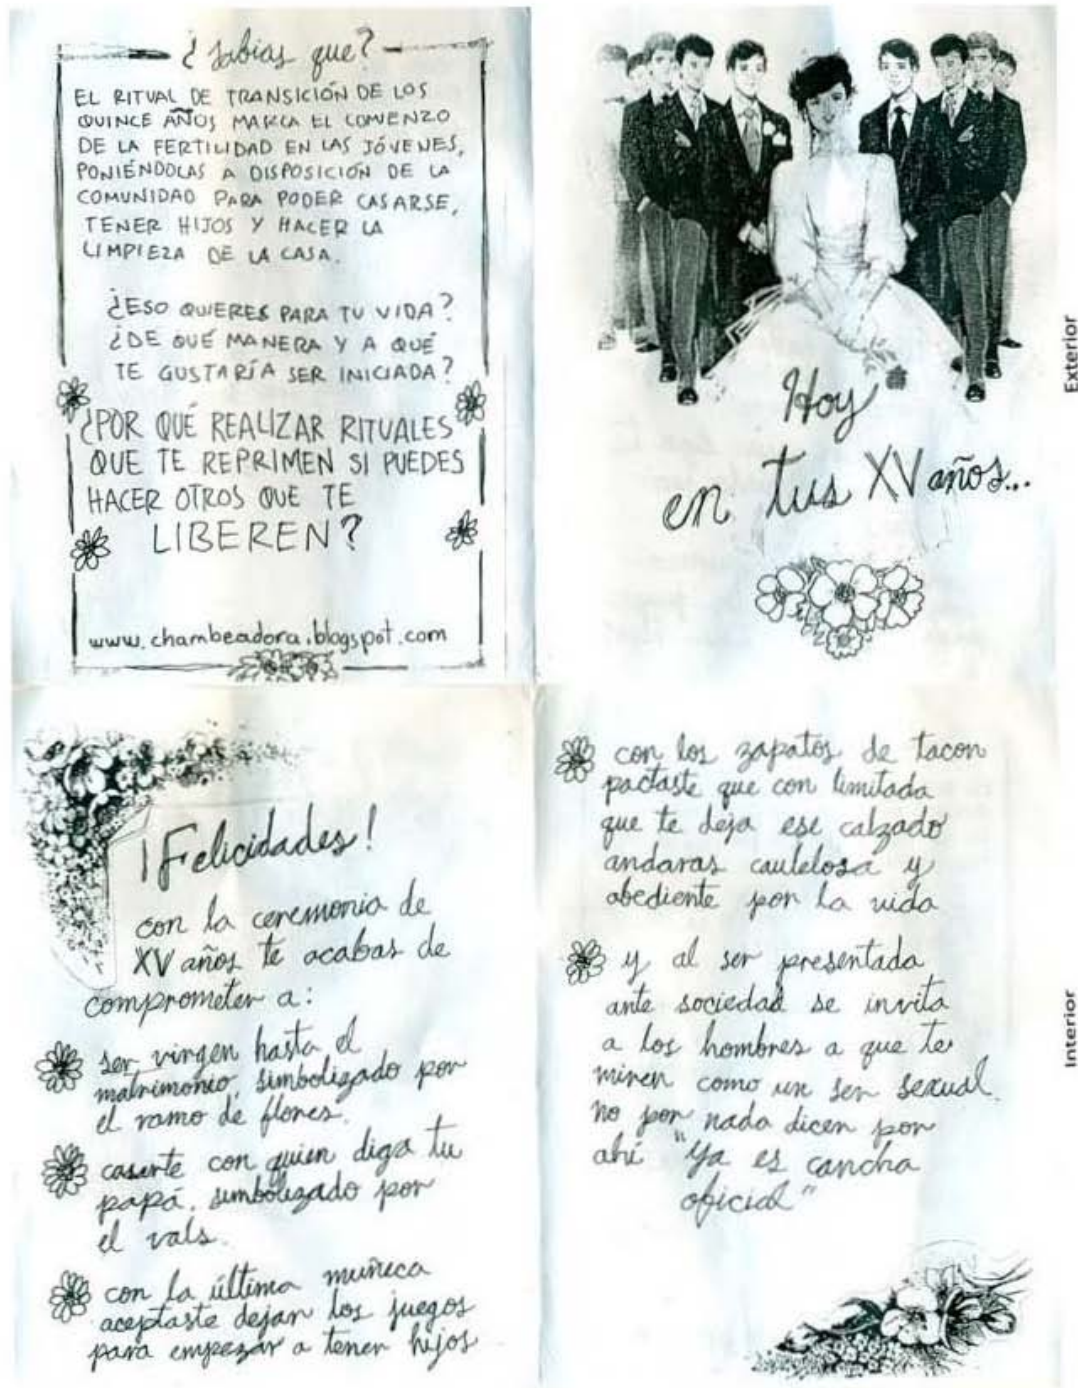 ¿Sabías que?
EL RITUAL DE TRANSICIÓN DE LOS
QUINCE AÑOS MARCA EL COMIENZO
DE LA FERTILIDAD EN LAS JÓVENES,
PONIÉNDOLAS A DISPOSICIÓN DE LA
COMUNIDAD PARA PODER CASARSE,
TENER HIJOS Y HACER LA
LIMPIEZA DE LA CASA.
¿ESO QUIERES PARA TU VIDA?
¿DE QUÉ MANERA Y A QUÉ
TE GUSTARÍA SER INICIADA?
¿POR QUÉ REALIZAR RITUALES
QUE TE REPRIMEN SI PUEDES
HACER OTROS QUE TE
LIBEREN?
www.chambeadora.blogspot.com
Hoy
en tus XV años...
Exterior
¡Felicidades!
con la ceremonia de
XV años te acabas de
comprometer a:
ser virgen hasta el
matrimonio, simbolizado por
el ramo de flores.
casarte con quien diga tu
papá, simbolizado por
el vals.
con la última muñeca
aceptaste dejar los juegos
para empezar a tener hijos
con los zapatos de tacon
pactaste que con limitada
que te deja ese calzado
andaras cautelosa y
obediente por la vida
y al ser presentada
ante sociedad se invita
a los hombres a que te
miren como un ser sexual.
no por nada dicen por
ahí "Ya es cancha
oficial"
Interior